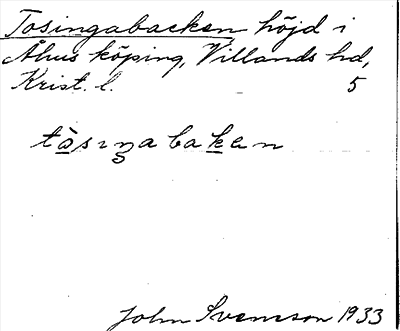 Tosingabacken höjd i
Åhus köping, Villands hd,
Krist. l. 5
tåsıŋabakən
John Svensson 1933